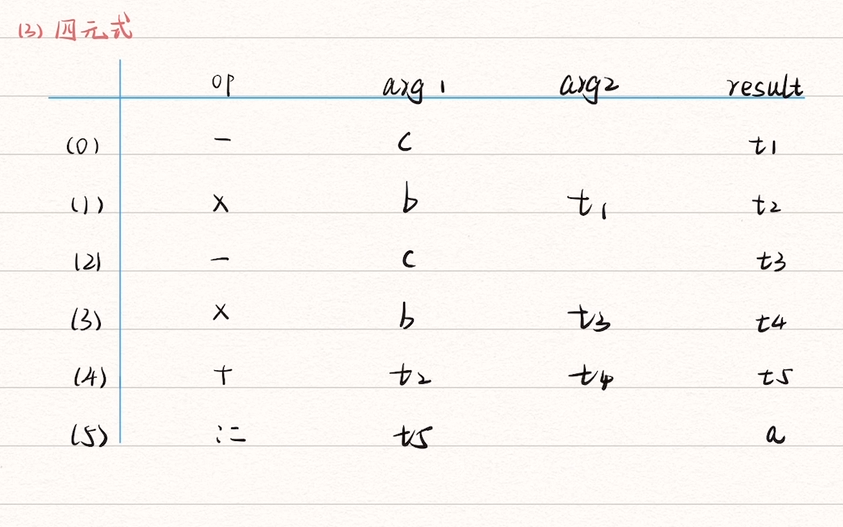 (3) 四元式
op arg1 arg2 result
(0) - c t1
(1) × b t1 t2
(2) - c t3
(3) × b t3 t4
(4) + t2 t4 t5
(5) := t5 a